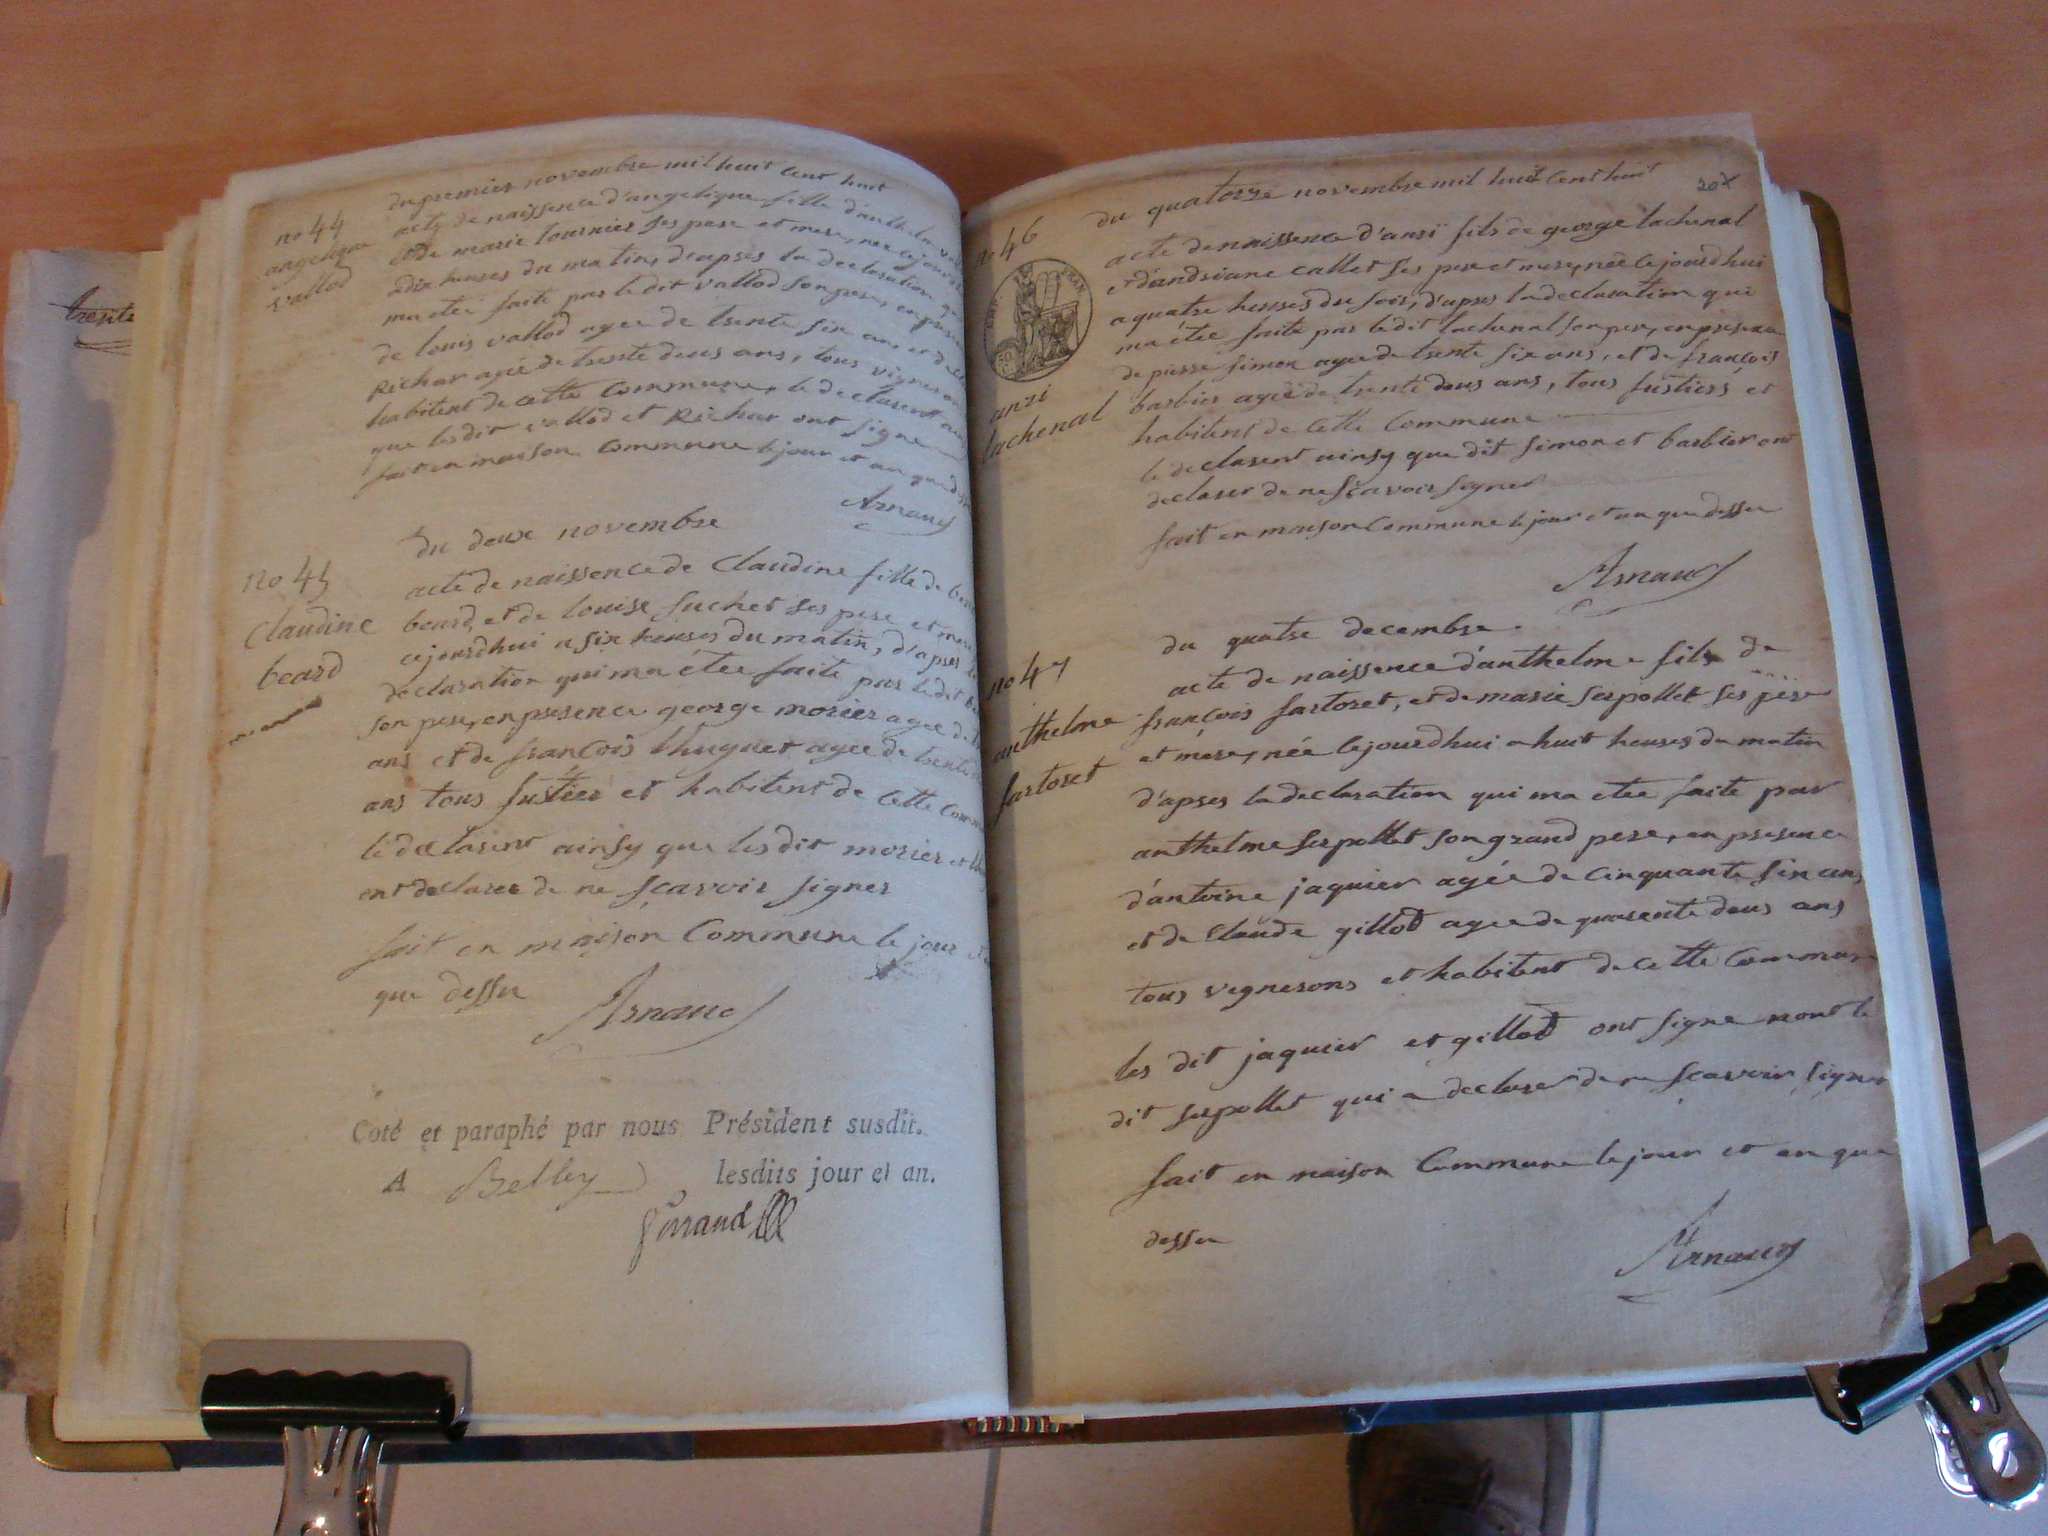 trente
no 44
angelique
vallod
du premier novembre mil huit cent huit
acte de naissence d'angelique fille d'anthelme
et de marie tournier ses pere et mere, née cejourdhui
a dix heures du matin, d'apres la declaration qui
ma étée faite par ledit vallod son pere, en presence
de louis vallod agee de trente six ans et de
Richar agée de trente deus ans, tous vignerons
habitent de cette Commune, le declarent
que lesdit vallod et Richar ont signe
fait en maison Commune le jour et an que dessu
Arnaud
no 45
Claudine
beard
du deux novembre
acte de naissence de Claudine fille de
beard, et de louise suchet ses pere et mere
cejourdhui a six heures du matin, d'apres la
declaration qui ma étée faite par ledit
son pere, en presence george morier agee de
ans et de françois huguet agee de trente
ans tous fustier et habitent de cette Comm
le declarent ainsy que lesdit morier et
ont declarer de ne sçavoir signer
fait en maison Commune le jour
que dessu
Arnaud
Coté et paraphé par nous Président susdit.
A Belley lesdits jour et an.
207
no 46
EMP. FRAN.
anri
lachenal
du quatorze novembre mil huit cent huit
acte de naissence d'anri fils de george lachenal
et d'andriane callet ses pere et mere, née cejourdhui
a quatre heures du soir, d'apres la declaration qui
ma étée faite par ledit lachenal son pere, en presence
de pierre simon agee de trente six ans, et de françois
barbier agée de trente deus ans, tous fustiers et
habitent de cette Commune
le declarent ainsy que dit simon et barbier ont
declarer de ne sçavoir signer
fait en maison Commune le jour et an que dessu
Arnaud
no 47
anthelme
sartoret
du quatre decembre.
acte de naissence d'anthelme fils de
françois sartoret, et de marie serpollet ses père
et mere, née cejourdhui a huit heures du matin
d'apres la declaration qui ma etee faite par
anthelme serpollet son grand pere, en presence
d'antoine jaquier agée de cinquante six ans
et de Claude gillod agee de quarente deus ans
tous vignerons et habitent de cette Commune
les dit jaquier et gillod ont signe nont le
dit serpollet qui a declarer de ne scavoir signer
fait en maison Commune le jour et an que
dessu
Arnaud